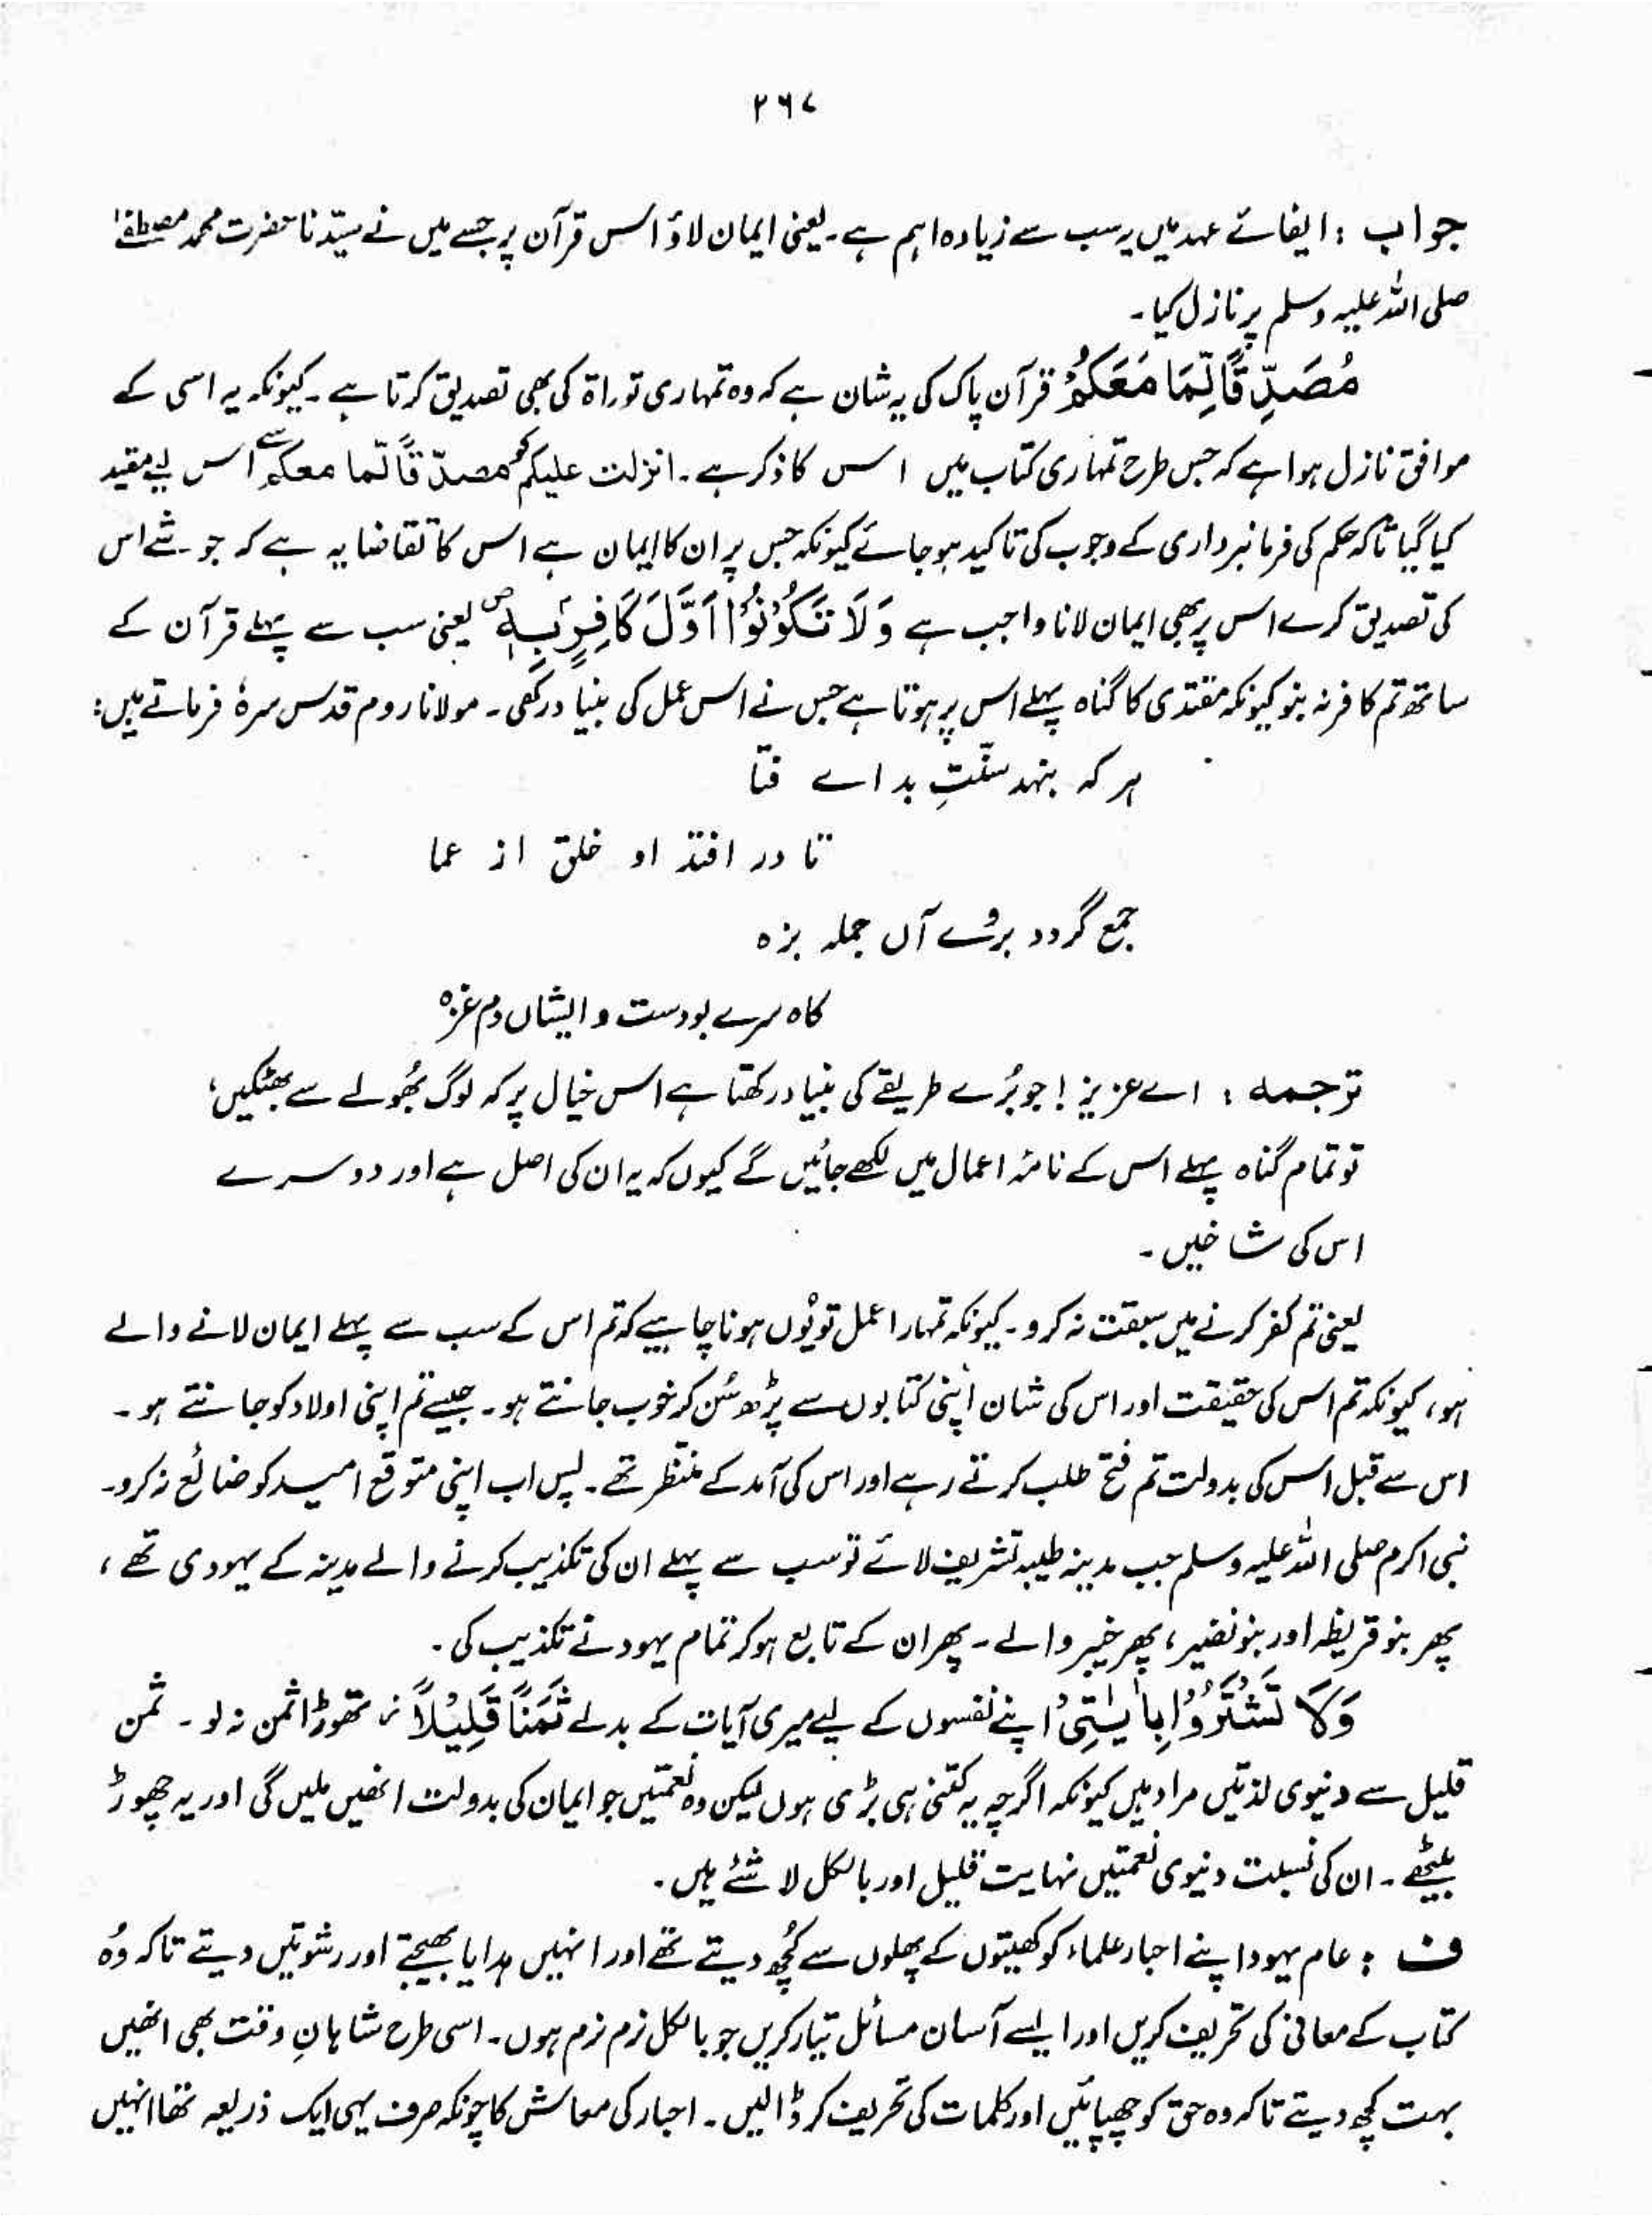 ۲۶۷
جواب : ایفائے عہد میں یہ سب سے زیادہ اہم ہے۔ یعنی ایمان لاؤ اس قرآن پر جسے میں نے سیّدنا حضرت محمد مصطفےٰ
صلی اللہ علیہ وسلم پر نازل کیا۔
مُصَدِّقًا لِّمَا مَعَكُمْ قرآن پاک کی یہ شان ہے کہ وہ تمہاری توراۃ کی بھی تصدیق کرتا ہے۔ کیونکہ یہ اسی کے
موافق نازل ہوا ہے کہ جس طرح تمہاری کتاب میں اس کا ذکر ہے۔ انزلت علیکم کو مصدّقًا لّما معکم سے اس لیے مقید
کیا گیا تاکہ حکم کی فرمانبرداری کے وجوب کی تاکید ہو جائے کیونکہ جس پر ان کا ایمان ہے اس کا تقاضا یہ ہے کہ جو شے اس
کی تصدیق کرے اس پر بھی ایمان لانا واجب ہے وَلَا تَكُوْنُوْٓا اَوَّلَ كَافِرٍۭ بِهٖ ص یعنی سب سے پہلے قرآن کے
ساتھ تم کافر نہ بنو کیونکہ مقتدی کا گناہ پہلے اس پر ہوتا ہے جس نے اس عمل کی بنیاد رکھی۔ مولانا روم قدس سرہٗ فرماتے ہیں:
ہر کہ بنہد سنّتِ بد اے فتا
تا در افتد او خلق از عما
جمع گردد بروے آں جملہ بزہ
کاہ سرے بودست و ایشاں دم غزہ
ترجمہ : اے عزیز! جو بُرے طریقے کی بنیاد رکھتا ہے اس خیال پر کہ لوگ بُھولے سے بھٹکیں،
تو تمام گناہ پہلے اس کے نامۂ اعمال میں لکھے جائیں گے کیوں کہ یہ ان کی اصل ہے اور دوسرے
اس کی شاخیں۔
یعنی تم کفر کرنے میں سبقت نہ کرو۔ کیونکہ تمہارا عمل تو یُوں ہونا چاہیے کہ تم اس کے سب سے پہلے ایمان لانے والے
ہو، کیونکہ تم اس کی حقیقت اور اس کی شان اپنی کتابوں سے پڑھ سُن کر خوب جانتے ہو۔ جیسے تم اپنی اولاد کو جانتے ہو۔
اس سے قبل اس کی بدولت تم فتح طلب کرتے رہے اور اس کی آمد کے منتظر تھے۔ پس اب اپنی متوقع امید کو ضائع نہ کرو۔
نبی اکرم صلی اللہ علیہ وسلم جب مدینہ طیبہ تشریف لائے تو سب سے پہلے ان کی تکذیب کرنے والے مدینہ کے یہودی تھے،
پھر بنو قریظہ اور بنو نضیر، پھر خیبر والے۔ پھر ان کے تابع ہو کر تمام یہود نے تکذیب کی۔
وَلَا تَشْتَرُوْا بِاٰيٰتِیْ اپنے نفسوں کے لیے میری آیات کے بدلے ثَمَنًا قَلِيْلًا ز تھوڑا ثمن نہ لو۔ ثمن
قلیل سے دنیوی لذتیں مراد ہیں کیونکہ اگرچہ یہ کتنی ہی بڑی ہوں لیکن وہ نعمتیں جو ایمان کی بدولت انھیں ملیں گی اور یہ چھوڑ
بیٹھے۔ ان کی نسبت دنیوی نعمتیں نہایت قلیل اور بالکل لاشئے ہیں۔
ف : عام یہود اپنے احبار علماء کو کھیتوں کے پھلوں سے کُچھ دیتے تھے اور انہیں ہدایا بھیجتے اور رشوتیں دیتے تاکہ وُہ
کتاب کے معانی کی تحریف کریں اور ایسے آسان مسائل تیار کریں جو بالکل نرم نرم ہوں۔ اسی طرح شاہانِ وقت بھی انھیں
بہت کچھ دیتے تاکہ وہ حق کو چھپائیں اور کلمات کی تحریف کر ڈالیں۔ احبار کی معاش کا چونکہ صرف یہی ایک ذریعہ تھا انہیں